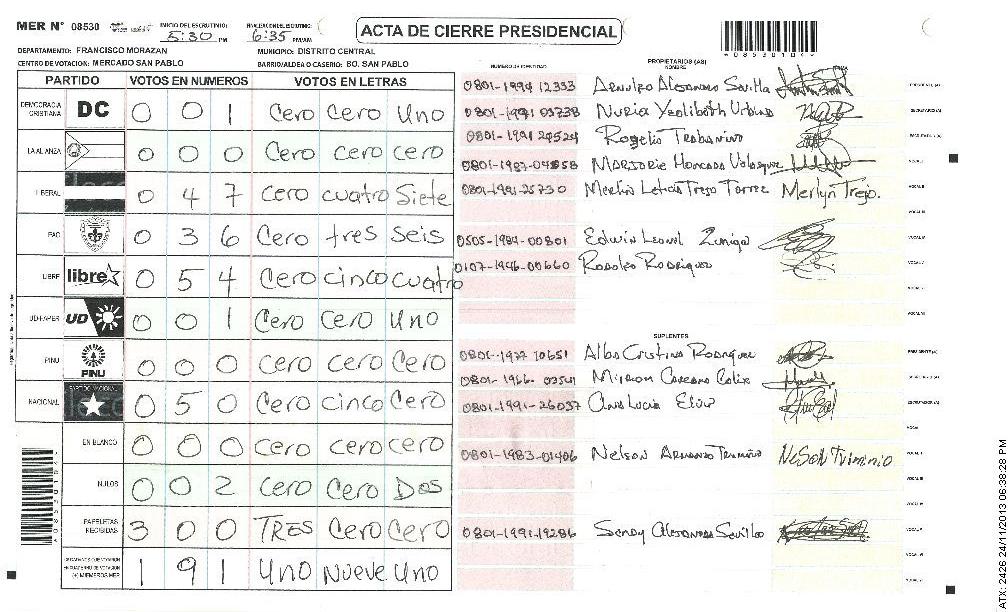 MER N° 08530 INICIO DEL ESCRUTINIO: 5:30 PM FINALIZACION DEL ESCRUTINIO: 6:35 PM/AM
ACTA DE CIERRE PRESIDENCIAL
DEPARTAMENTO: FRANCISCO MORAZAN MUNICIPIO: DISTRITO CENTRAL
CENTRO DE VOTACION: MERCADO SAN PABLO BARRIO/ALDEA O CASERIO: BO. SAN PABLO
PARTIDO VOTOS EN NUMEROS VOTOS EN LETRAS
DEMOCRACIA CRISTIANA DC 0 0 1 Cero Cero Uno
LA ALIANZA 0 0 0 Cero cero cero
LIBERAL 0 4 7 cero cuatro Siete
PAC 0 3 6 Cero tres seis
LIBRE libre 0 5 4 Cero cinco cuatro
UD-FAPER UD 0 0 1 Cero Cero Uno
PINU PINU 0 0 0 cero cero Cero
NACIONAL PARTIDO NACIONAL 0 5 0 Cero cinco Cero
EN BLANCO 0 0 0 cero cero cero
NULOS 0 0 2 cero Cero Dos
PAPELETAS RECIBIDAS 3 0 0 TRES Cero Cero
1 9 1 Uno Nueve Uno
NUMERO DE IDENTIDAD PROPIETARIOS (AS)
NOMBRE FIRMA
0801-1994 12333 PRESIDENTE (A)
0801-1991 03738 SECRETARIO (A)
0801-1991 24524 Rogelio Trabanino ESCRUTADOR (A)
0801-1987-04858 Marjorie Moncada VOCAL I
0801-1991-25730 Merlin Leticia Trejo Torrez Merlyn Trejo. VOCAL II
VOCAL III
0505-1984-00801 Edwin Leonel Zuniga VOCAL IV
0107-1946-00660 Rodolfo Rodriguez VOCAL V
VOCAL VI
SUPLENTES
0801-1977 10651 Alba Cristina Rodriguez PRESIDENTE (A)
0801-1966- Miriam SECRETARIO (A)
0801-1991-26037 Ana Lucia ESCRUTADOR (A)
VOCAL I
0801-1983-01406 Nelson Armando Triminio Nelson Triminio VOCAL II
VOCAL III
0801-1991-19286 Sendy
ATX: 2426 24/11/2013 06:38:28 PM